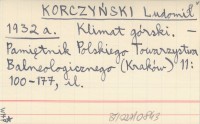 KORCZYŃSKI Ludomił
1932 a. Klimat górski. –
Pamiętnik Polskiego Towarzystwa
Balneologicznego (Kraków) 11:
100-177, il.